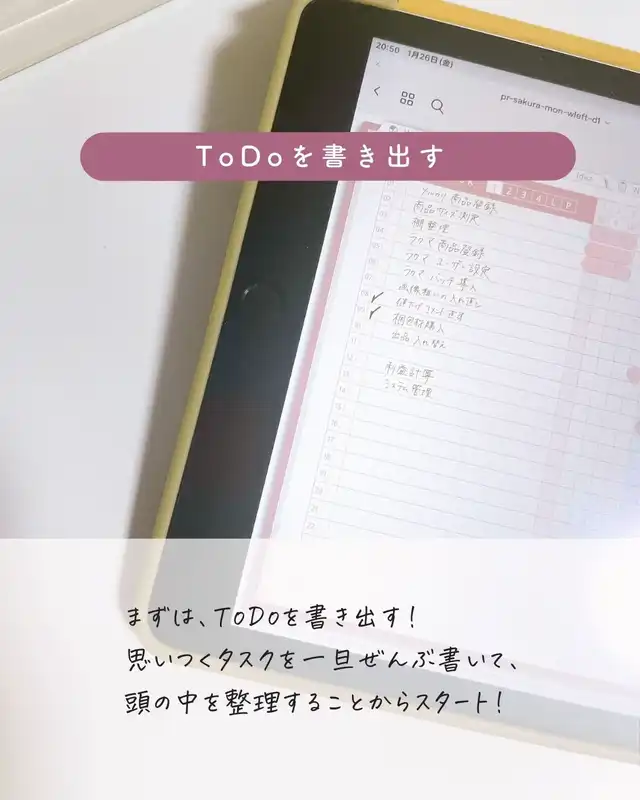 20:50 1月26日(金)
pr-sakura-mon-wleft-d1
ToDoを書き出す
1 2 3 4 L P
商品登録
商品サイズ測定
棚整理
フクマ 商品登録
フクマ ユーザー設定
フクマ バッチ導入
梱包材購入
出品入れ替え
利益計算
システム管理
まずは、ToDoを書き出す!
思いつくタスクを一旦ぜんぶ書いて、
頭の中を整理することからスタート!